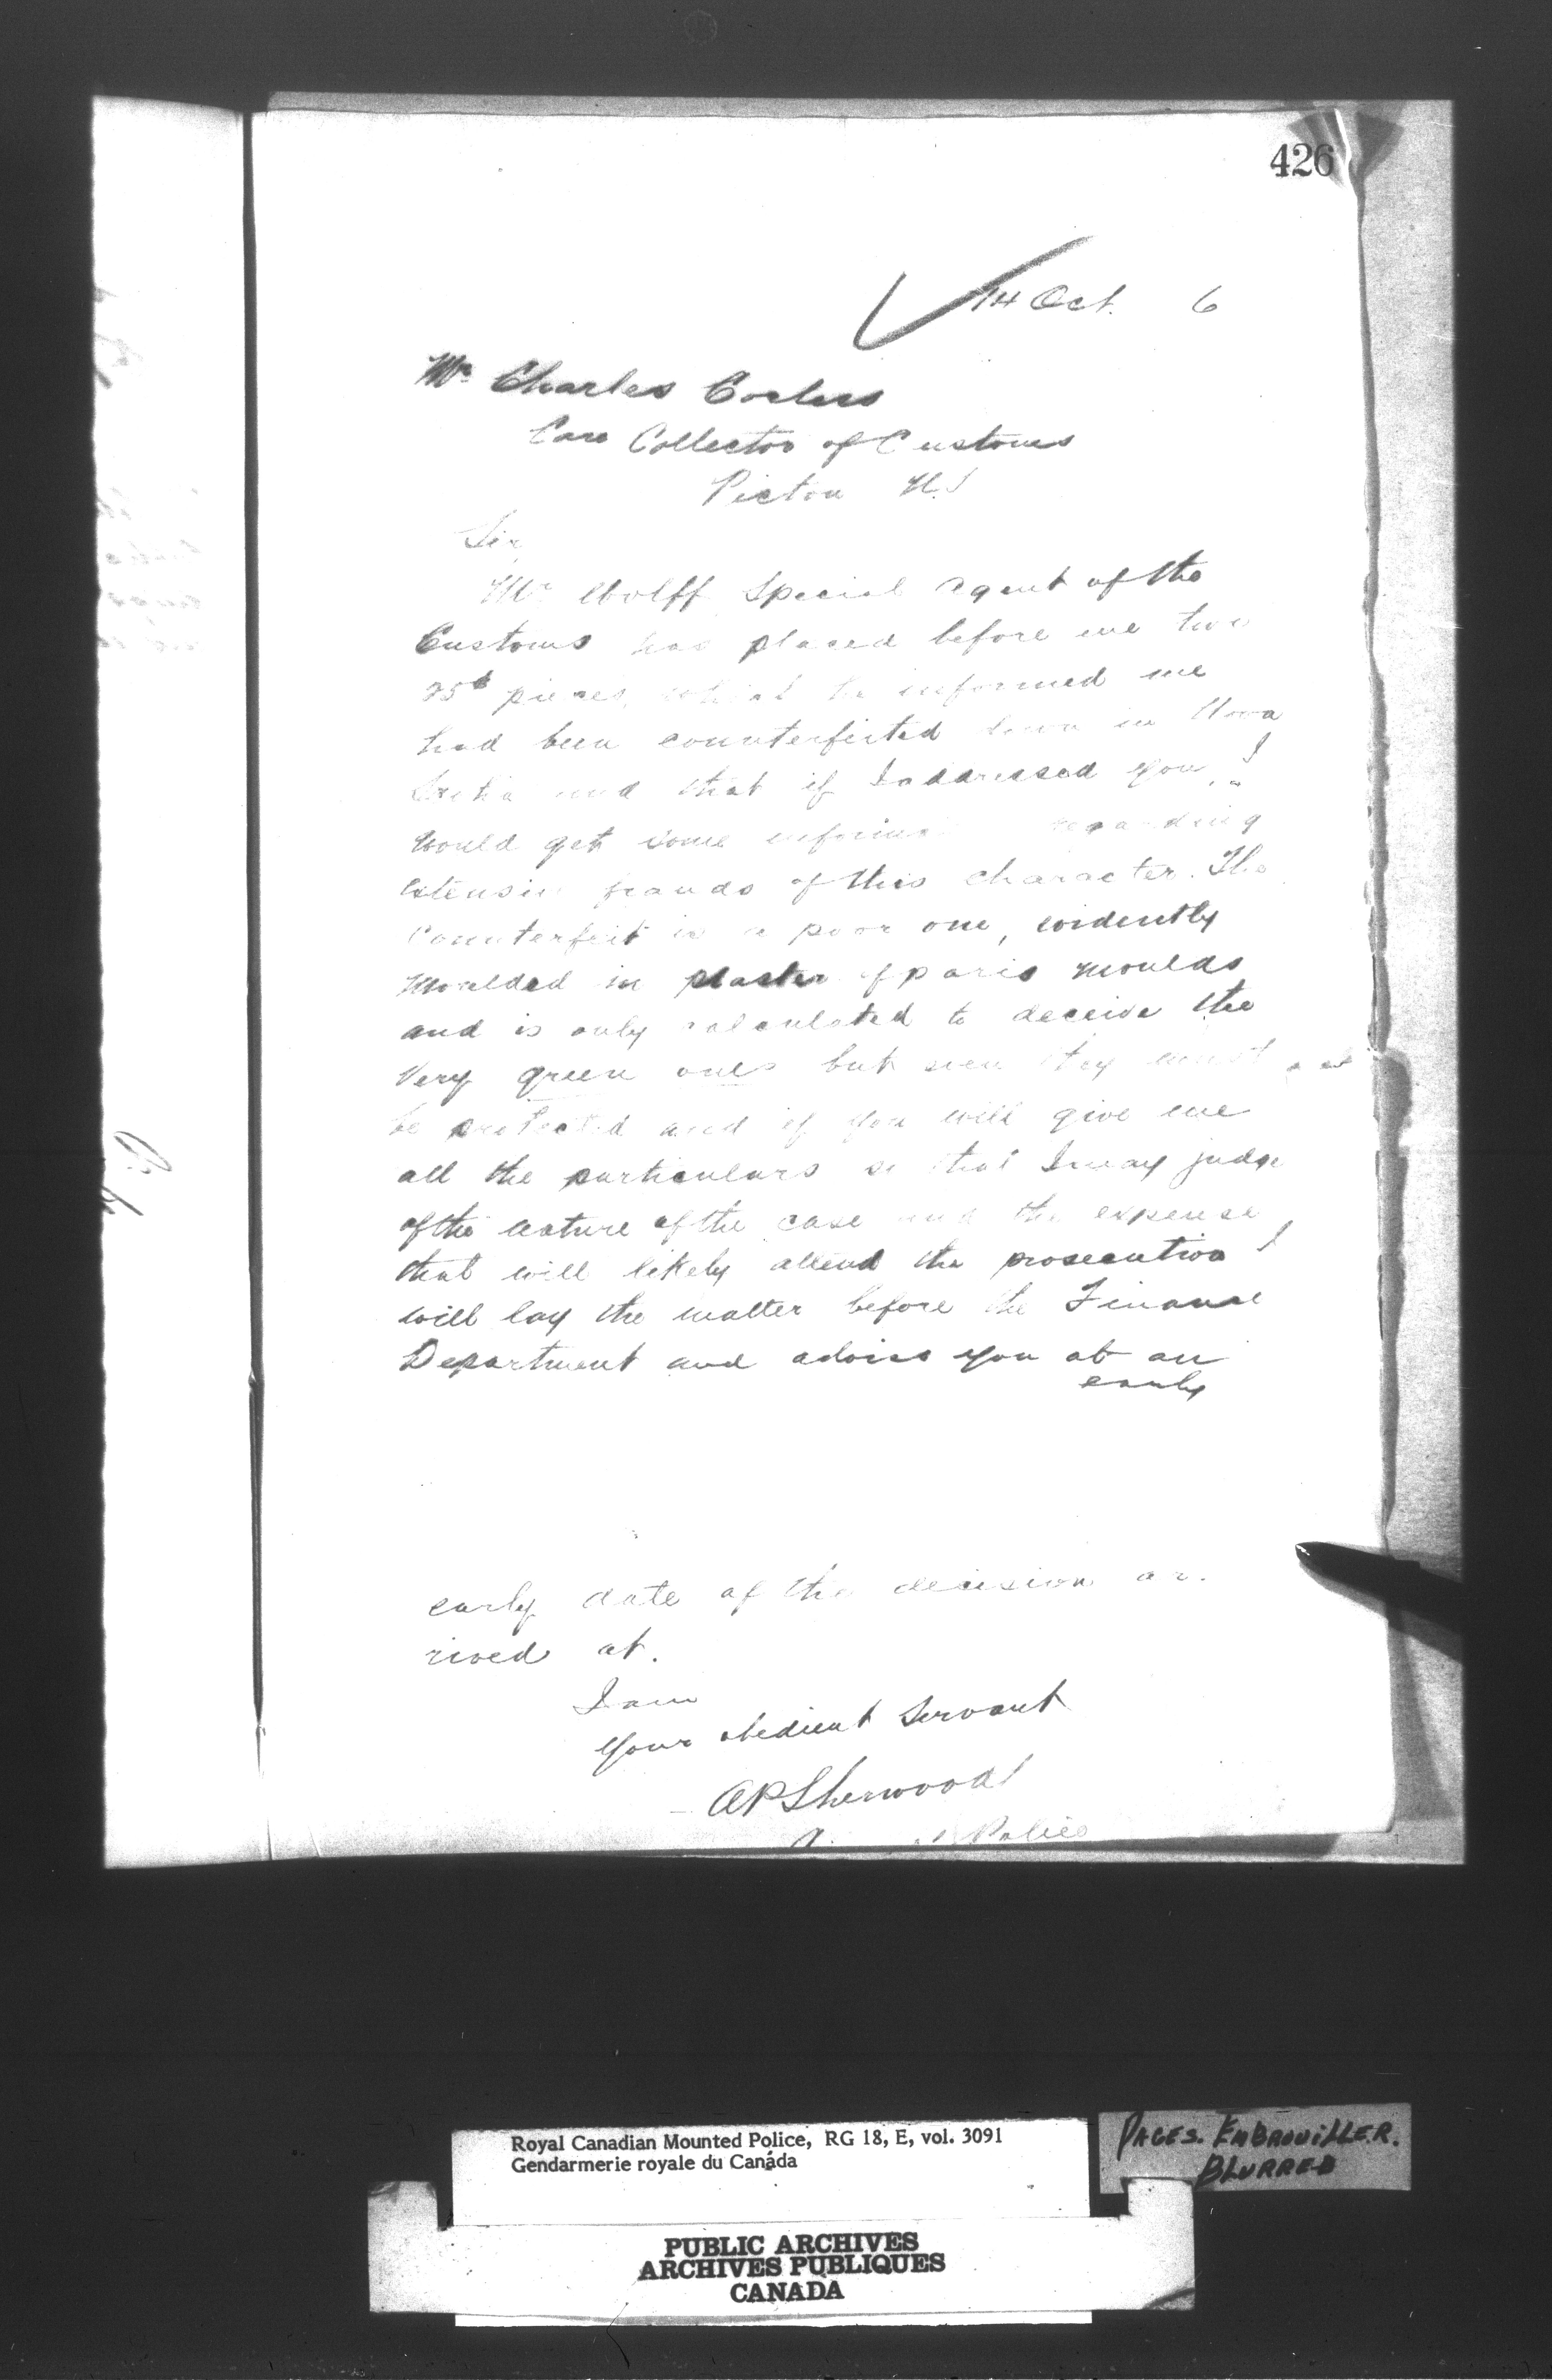 426
14 Oct. 6
Mr Charles
Care Collector of Customs
Pictou N.S
Sir
Mr Wolff Special agent of the
Customs has placed before me two
25¢ pieces, which he informed me
had been counterfeited down in Nova
Scotia and that if I addressed you, I
would get some regarding
extensive frauds of this character. The
Counterfeit is a poor one, evidently
moulded in plaster of paris moulds
and is only calculated to deceive the
very green ones but even they must
be protected and if you will give me
all the particulars so that I may judge
of the nature of the case and the expense
that will likely attend the prosecution I
will lay the matter before the Finance
Department and advise you at an
early
early date of the decision ar-
rived at.
I am
Your obedient Servant
A P Sherwood
Police
Royal Canadian Mounted Police, RG 18, E, vol. 3091
Gendarmerie royale du Canada
PAGES. EMBROUILLER.
BLURRED
PUBLIC ARCHIVES
ARCHIVES PUBLIQUES
CANADA